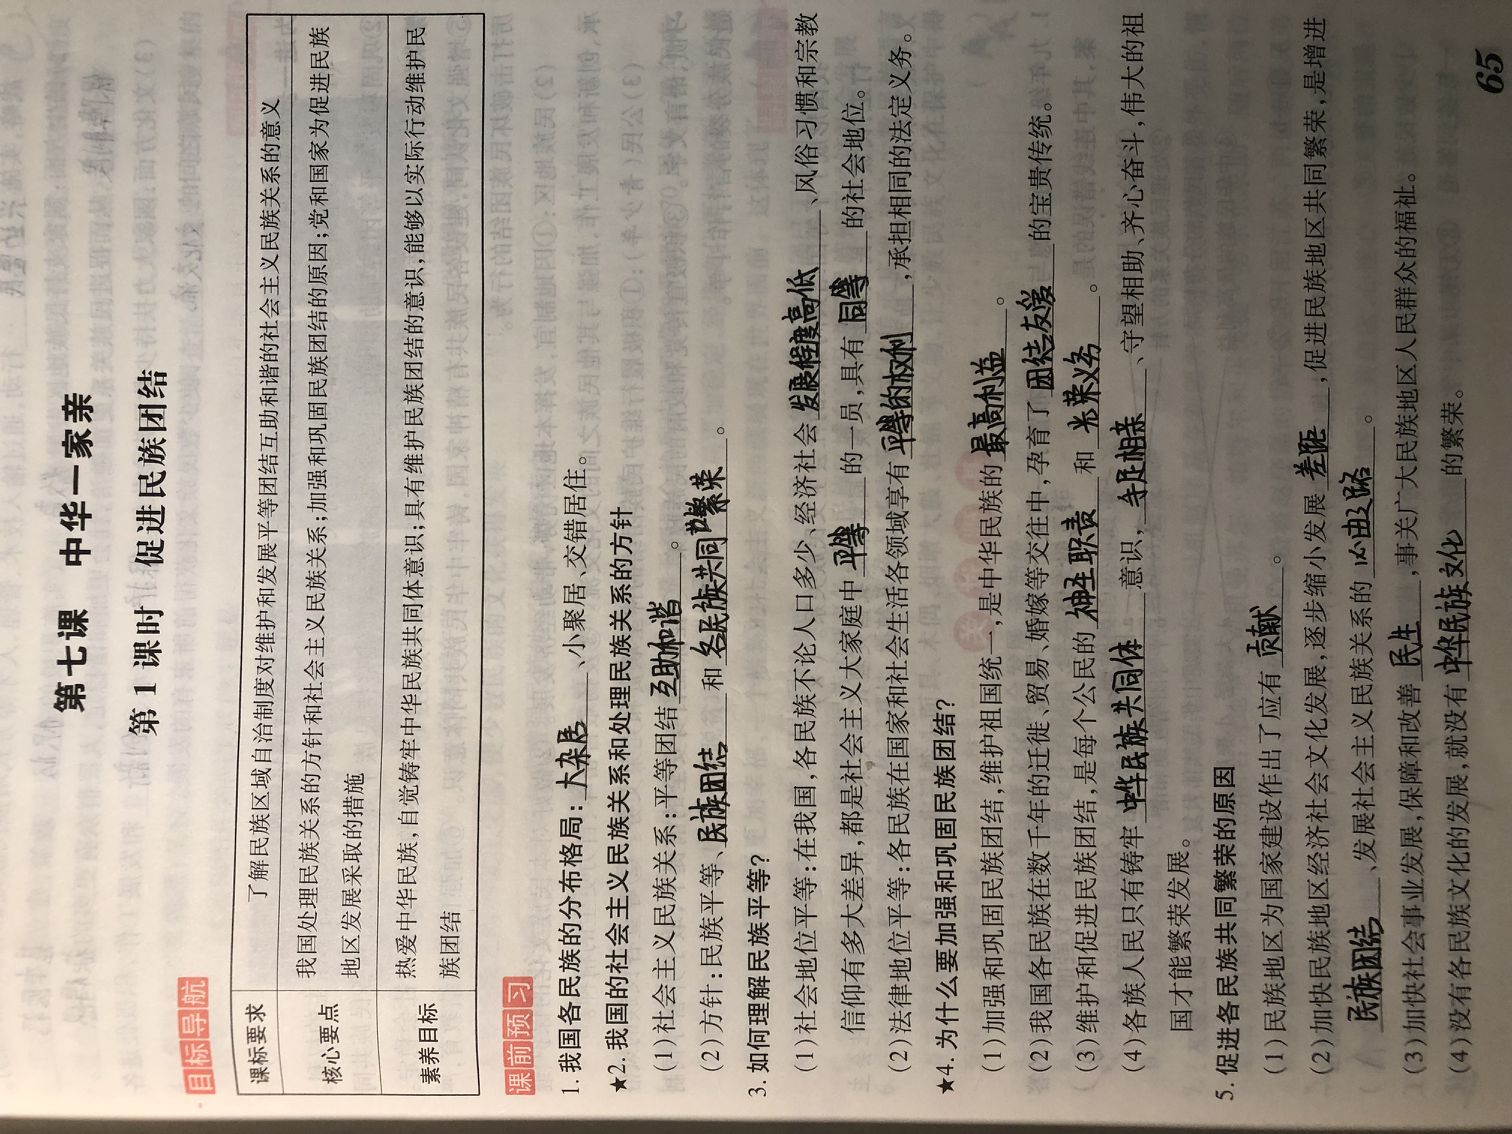 第七课 中华一家亲
第1课时 促进民族团结
目标导航
课标要求 了解民族区域自治制度对维护和发展平等团结互助和谐的社会主义民族关系的意义
核心要点 我国处理民族关系的方针和社会主义民族关系;加强和巩固民族团结的原因;党和国家为促进民族
地区发展采取的措施
素养目标 热爱中华民族,自觉铸牢中华民族共同体意识;具有维护民族团结的意识,能够以实际行动维护民
族团结
课前预习
1. 我国各民族的分布格局:大杂居、小聚居、交错居住。
★2. 我国的社会主义民族关系和处理民族关系的方针
(1)社会主义民族关系:平等团结互助和谐。
(2)方针:民族平等、民族团结和各民族共同繁荣。
3. 如何理解民族平等?
(1)社会地位平等:在我国,各民族不论人口多少、经济社会发展程度高低、风俗习惯和宗教
信仰有多大差异,都是社会主义大家庭中平等的一员,具有同等的社会地位。
(2)法律地位平等:各民族在国家和社会生活各领域享有平等的权利,承担相同的法定义务。
★4. 为什么要加强和巩固民族团结?
(1)加强和巩固民族团结,维护祖国统一,是中华民族的最高利益。
(2)我国各民族在数千年的迁徙、贸易、婚嫁等交往中,孕育了团结友爱的宝贵传统。
(3)维护和促进民族团结,是每个公民的神圣职责和光荣义务。
(4)各族人民只有铸牢中华民族共同体意识,手足相亲、守望相助、齐心奋斗,伟大的祖
国才能繁荣发展。
5. 促进各民族共同繁荣的原因
(1)民族地区为国家建设作出了应有贡献。
(2)加快民族地区经济社会文化发展,逐步缩小发展差距,促进民族地区共同繁荣,是增进
民族团结、发展社会主义民族关系的必由之路。
(3)加快社会事业发展,保障和改善民生,事关广大民族地区人民群众的福祉。
(4)没有各民族文化的发展,就没有中华民族文化的繁荣。
65